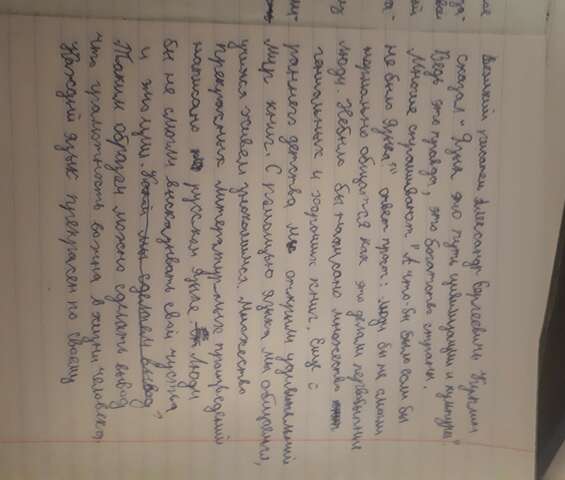 Великий писатель Александр Сергеевич Куприн
сказал "Язык это путь цивилизации и культуры".
Ведь это правда, это богатство страны.
Многие спрашивают "А что бы было если бы
не было языка?" ответ прост: люди бы не смогли
нормально общатся как это делали первобытные
люди. Небыло бы написано множество
гениальных и хороших книг. Ещё с
раннего детства мы открыли удивительный
мир книг. С помощью языка мы общаемся,
учимся живем знакомимся. Множество
прекрасных литературных произведений
написано русском языке люди
бы не смогли высказывать свои чувства
и эмоции. Хотя мы сделаем вывод
Таким образом можно сделать вывод
что грамотность важна в жизни человека.
Каждый язык прекрасен по своему